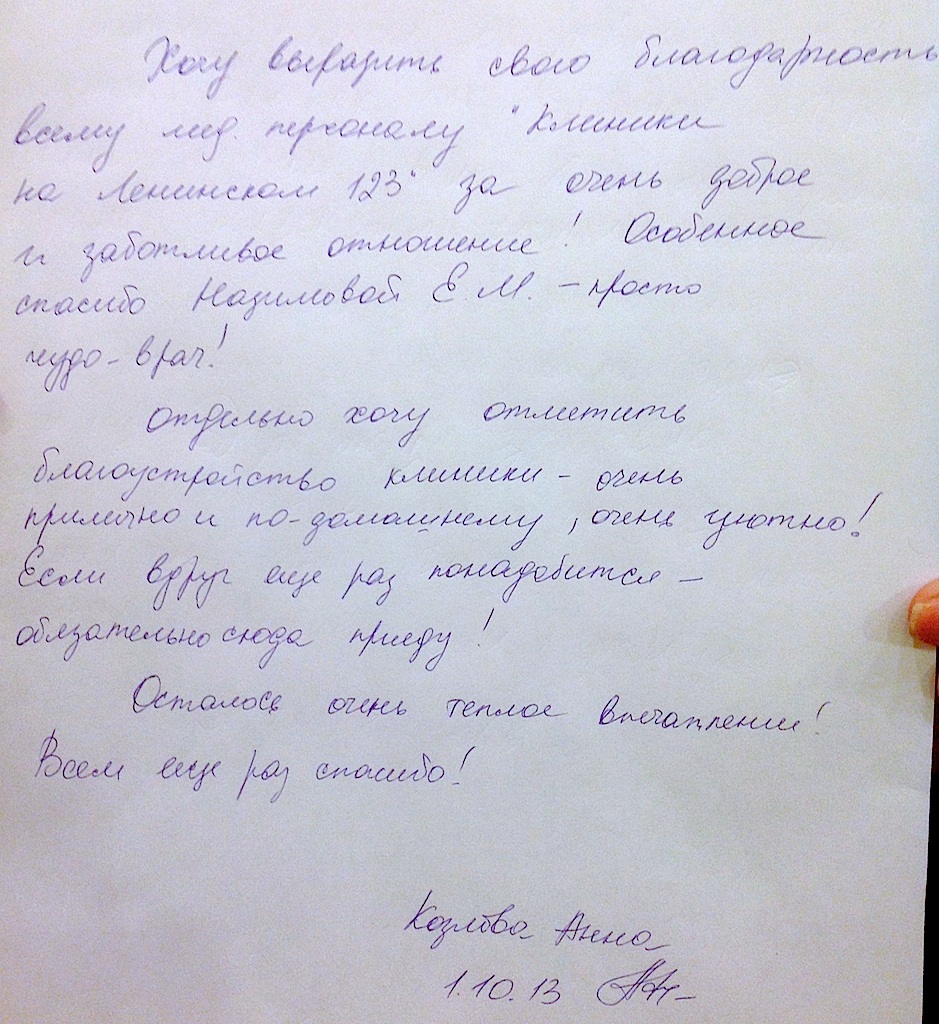 Хочу выразить свою благодарность
всему мед. персоналу "Клиники
на Ленинском 123" за очень доброе
и заботливое отношение! Особенное
спасибо Назимовой Е.М. – просто
чудо-врач!
Отдельно хочу отметить
благоустройство клиники – очень
прилично и по-домашнему, очень уютно!
Если вдруг еще раз понадобится –
обязательно сюда приеду!
Осталось очень теплое впечатление!
Всем еще раз спасибо!
Козлова Анна
1.10.13